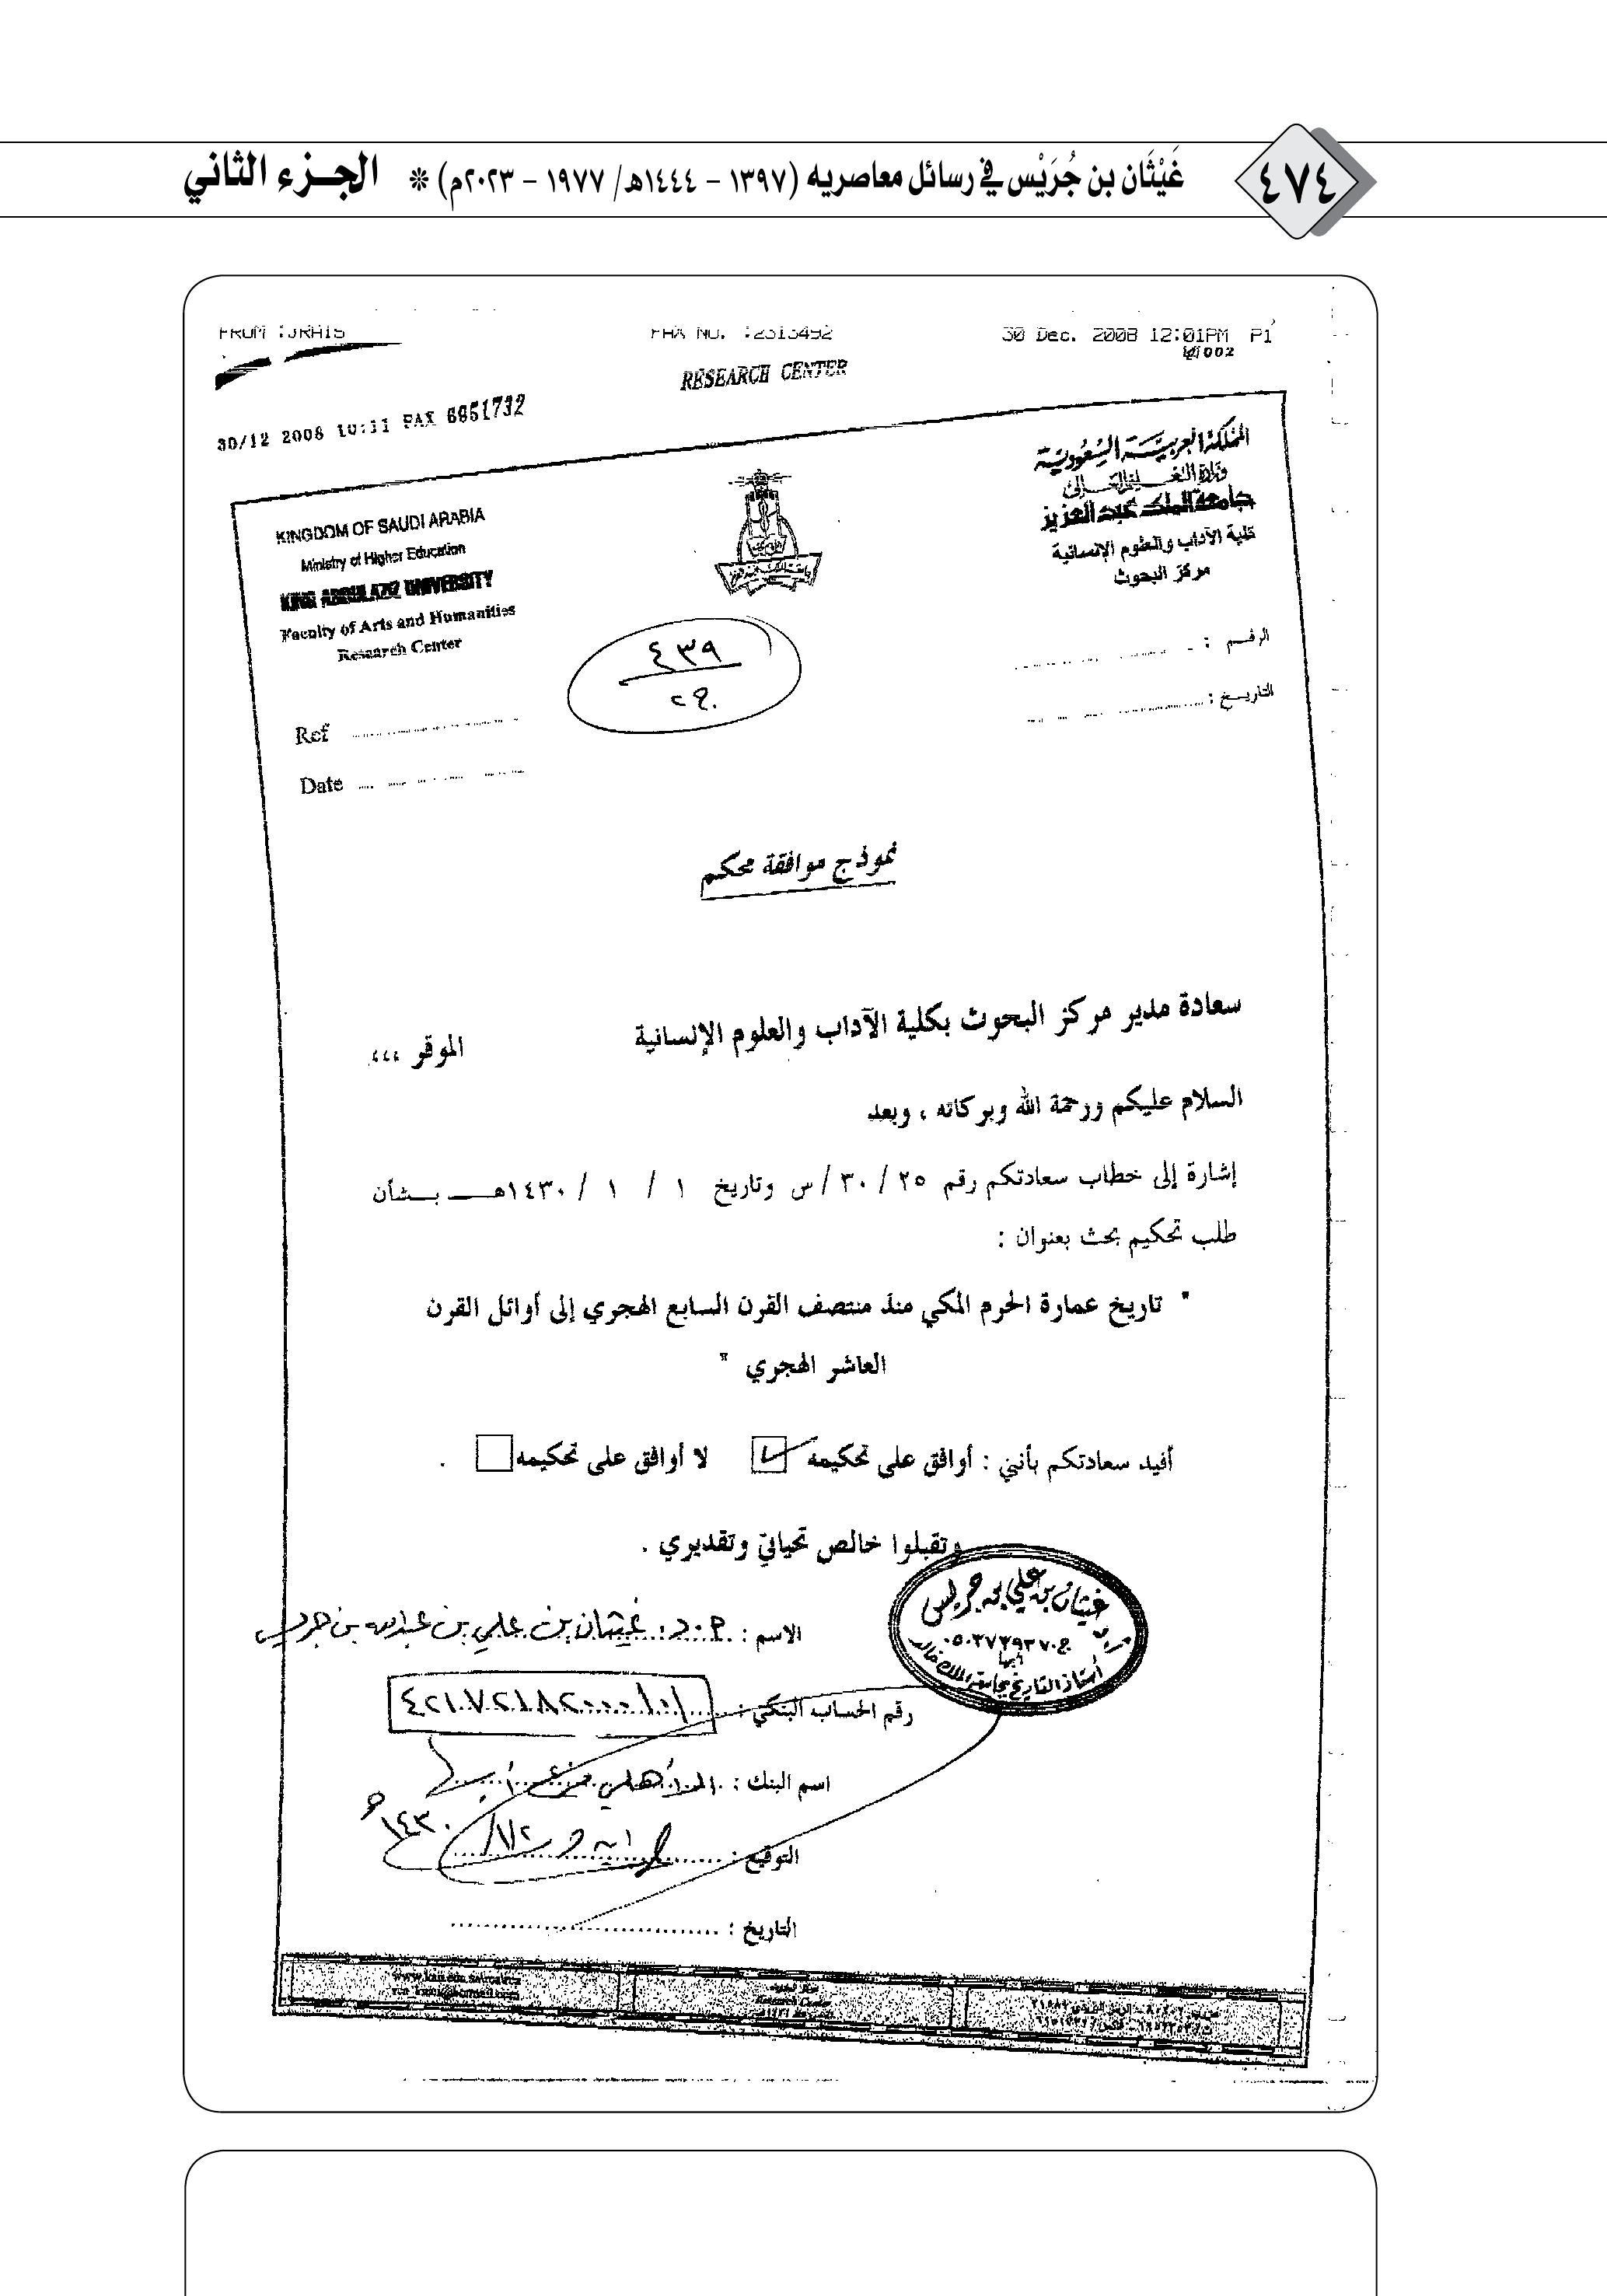 ٤٧٤
غَيْثَان بن جُرَيْس في رسائل معاصريه (١٣٩٧ – ١٤٤٤هـ/ ١٩٧٧ – ٢٠٢٣م) * الجـزء الثاني
FROM :JRAIS FAX NO. :2313492 30 Dec. 2008 12:01PM P1
002
RESEARCH CENTER
30/12 2008 10:11 FAX 6951732
المملكة العربية السعودية
وزارة التعليم العالي
جامعة الملك عبد العزيز
كلية الآداب والعلوم الإنسانية
مركز البحوث
KINGDOM OF SAUDI ARABIA
Ministry of Higher Education
KING ABDULAZIZ UNIVERSITY
Faculty of Arts and Humanities
Research Center
الرقم :
التاريخ :
٤٣٩
Ref
Date
نموذج موافقة محكم
سعادة مدير مركز البحوث بكلية الآداب والعلوم الإنسانية الموقر ،،،
السلام عليكم ورحمة الله وبركاته ، وبعد
إشارة إلى خطاب سعادتكم رقم ٢٥ / ٣٠ / س وتاريخ ١ / ١ / ١٤٣٠هـ بشأن
طلب تحكيم بحث بعنوان :
" تاريخ عمارة الحرم المكي منذ منتصف القرن السابع الهجري إلى أوائل القرن
العاشر الهجري "
أفيد سعادتكم بأنني : أوافق على تحكيمه لا أوافق على تحكيمه .
وتقبلوا خالص تحياتي وتقديري .
غيثان بن علي بن جريس
أبها
أستاذ التاريخ بجامعة الملك خالد
الاسم : أ.د. غيثان بن علي بن عبدالله بن جريس
رقم الحساب البنكي :
اسم البنك : الأهلي
التوقيع :
١٤٣٠هـ
التاريخ :
Research Center